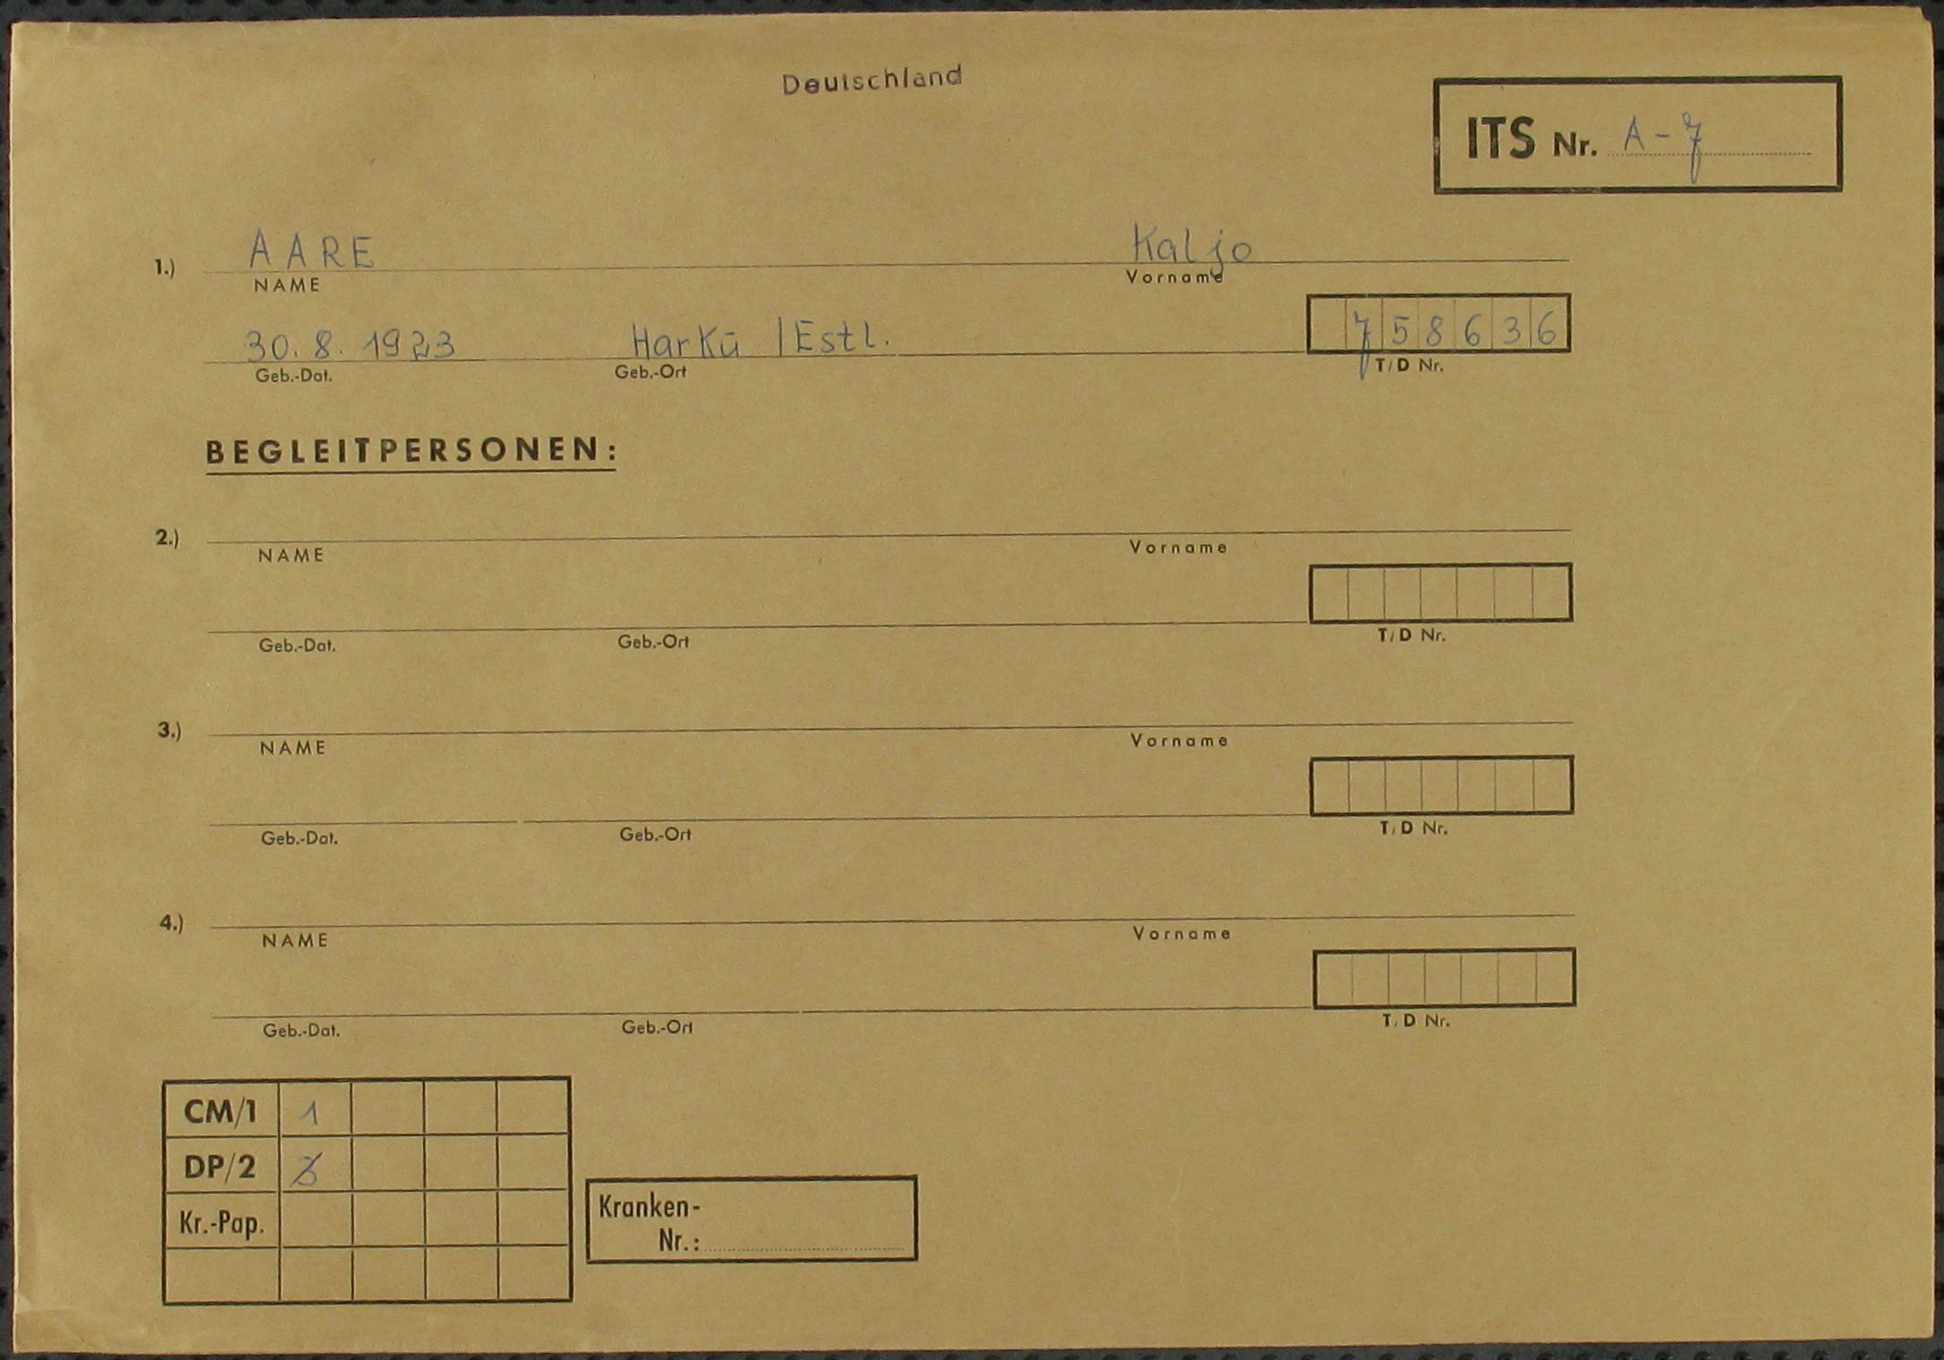 Deutschland
ITS Nr. A-7
1.) AARE Kaljo
NAME Vorname
30. 8. 1923 Harkū /Estl. 758636
Geb.-Dat. Geb.-Ort T/D Nr.
BEGLEITPERSONEN:
2.)
NAME Vorname
Geb.-Dat. Geb.-Ort T/D Nr.
3.)
NAME Vorname
Geb.-Dat. Geb.-Ort T/D Nr.
4.)
NAME Vorname
Geb.-Dat. Geb.-Ort T/D Nr.
CM/1 1
DP/2
Kr.-Pap.
Kranken-
Nr.: